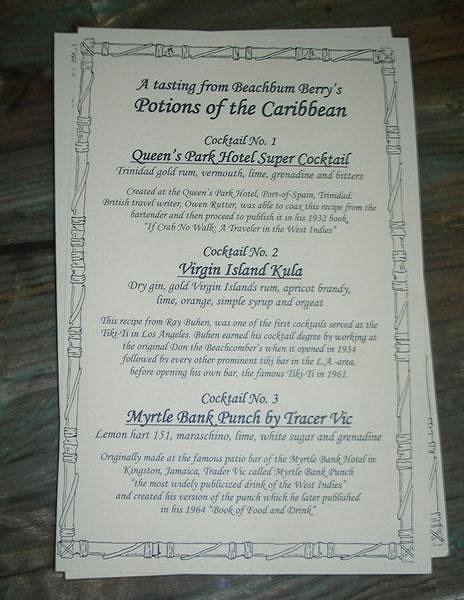 A tasting from Beachbum Berry's
Potions of the Caribbean
Cocktail No. 1
Queen's Park Hotel Super Cocktail
Trinidad gold rum, vermouth, lime, grenadine and bitters
Created at the Queen's Park Hotel, Port-of-Spain, Trinidad.
British travel writer, Owen Rutter, was able to coax this recipe from the
bartender and then proceed to publish it in his 1932 book,
"If Crab No Walk: A Traveler in the West Indies"
Cocktail No. 2
Virgin Island Kula
Dry gin, gold Virgin Islands rum, apricot brandy,
lime, orange, simple syrup and orgeat
This recipe from Ray Buhen, was one of the first cocktails served at the
Tiki-Ti in Los Angeles. Buhen earned his cocktail degree by working at
the original Don the Beachcomber's when it opened in 1934
followed by every other prominent tiki bar in the L.A.-area.
before opening his own bar, the famous Tiki-Ti in 1961.
Cocktail No. 3
Myrtle Bank Punch by Tracer Vic
Lemon hart 151, maraschino, lime, white sugar and grenadine
Originally made at the famous patio bar of the Myrtle Bank Hotel in
Kingston, Jamaica, Trader Vic called Myrtle Bank Punch
"the most widely publicized drink of the West Indies"
and created his version of the punch which he later published
in his 1964 "Book of Food and Drink"